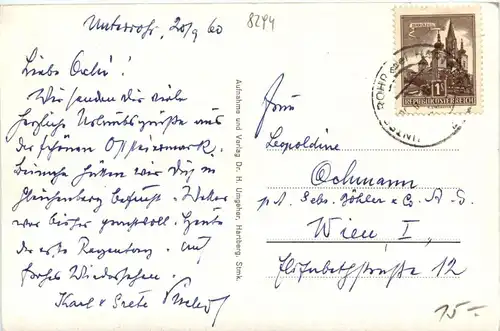 Unterrohr, 20/9 60
8294
Liebe Ochi!
Wir senden dir viele
herzliche Urlaubsgrüße aus
der schönen Oststeiermark.
wir Dich in
Gleichenberg besucht. Wetter
war bisher prachtvoll. Heute
der erste Regentag. Auf
frohes Wiedersehen.
Karl u. Grete
Aufnahme und Verlag Dr. H. Umgeher, Hartberg, Stmk.
MARIAZELL
1 S
REPUBLIK ÖSTERREICH
UNTERROHR
Frau
Leopoldine
Ochmann
p. A. Gebr. Böhler & Co. A. G.
Wien, I,
Elisabethstraße 12
15.-